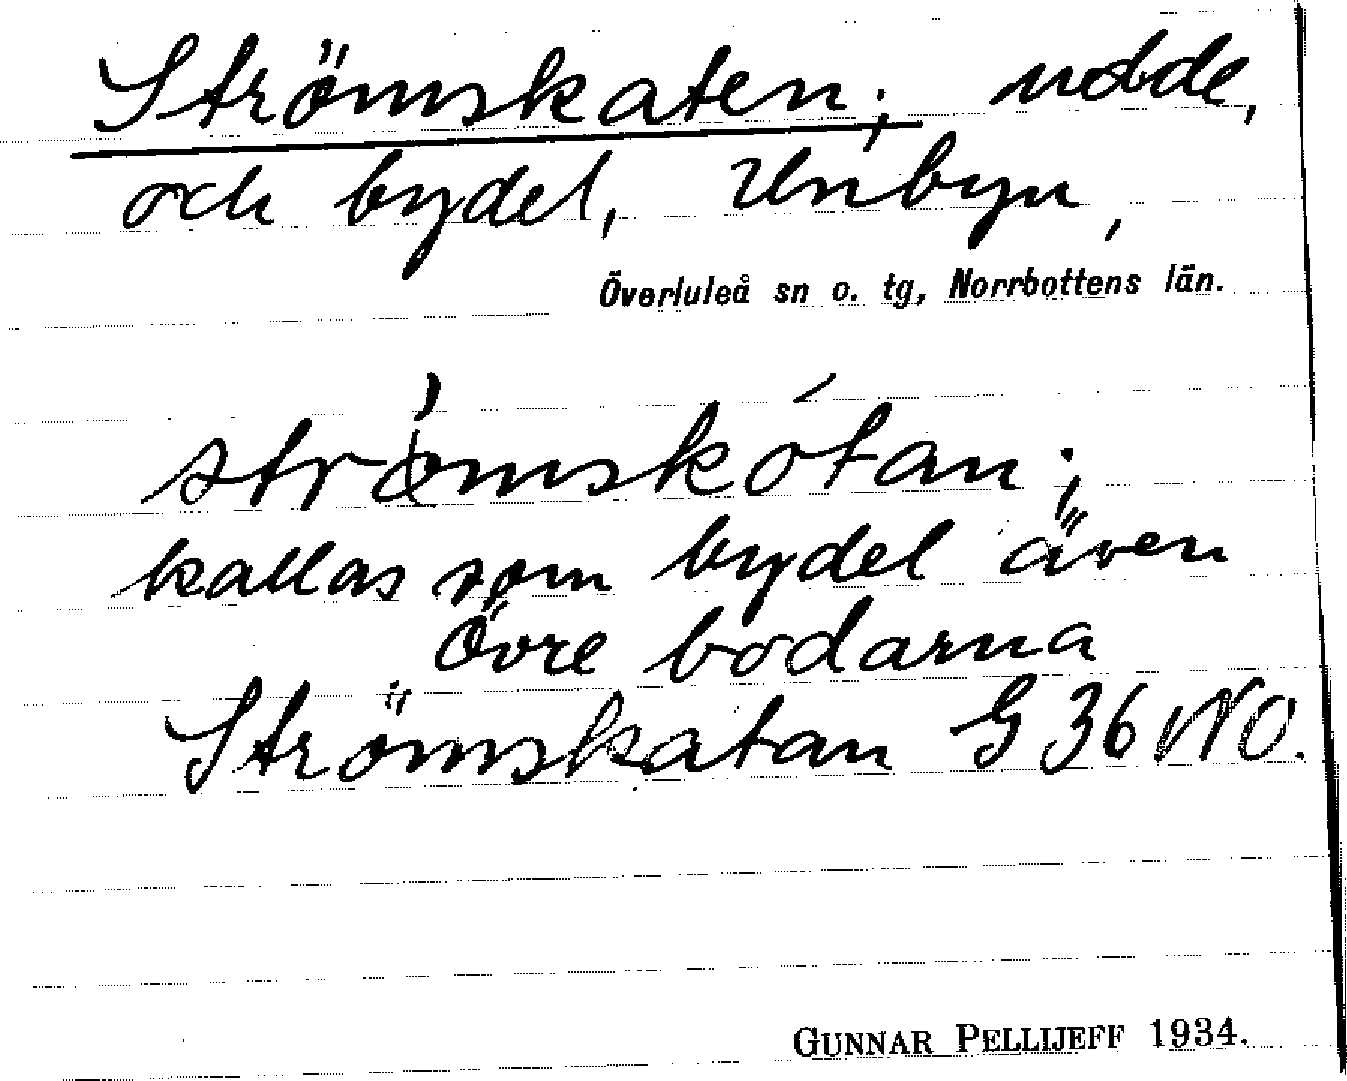 Strömskaten; udde,
och bydel, Unbyn,
Överluleå sn o. tg, Norrbottens län.
strömskótan;
kallas som bydel även
Övre bodarna
Strömskatan G 36 NO.
GUNNAR PELLIJEFF 1934.